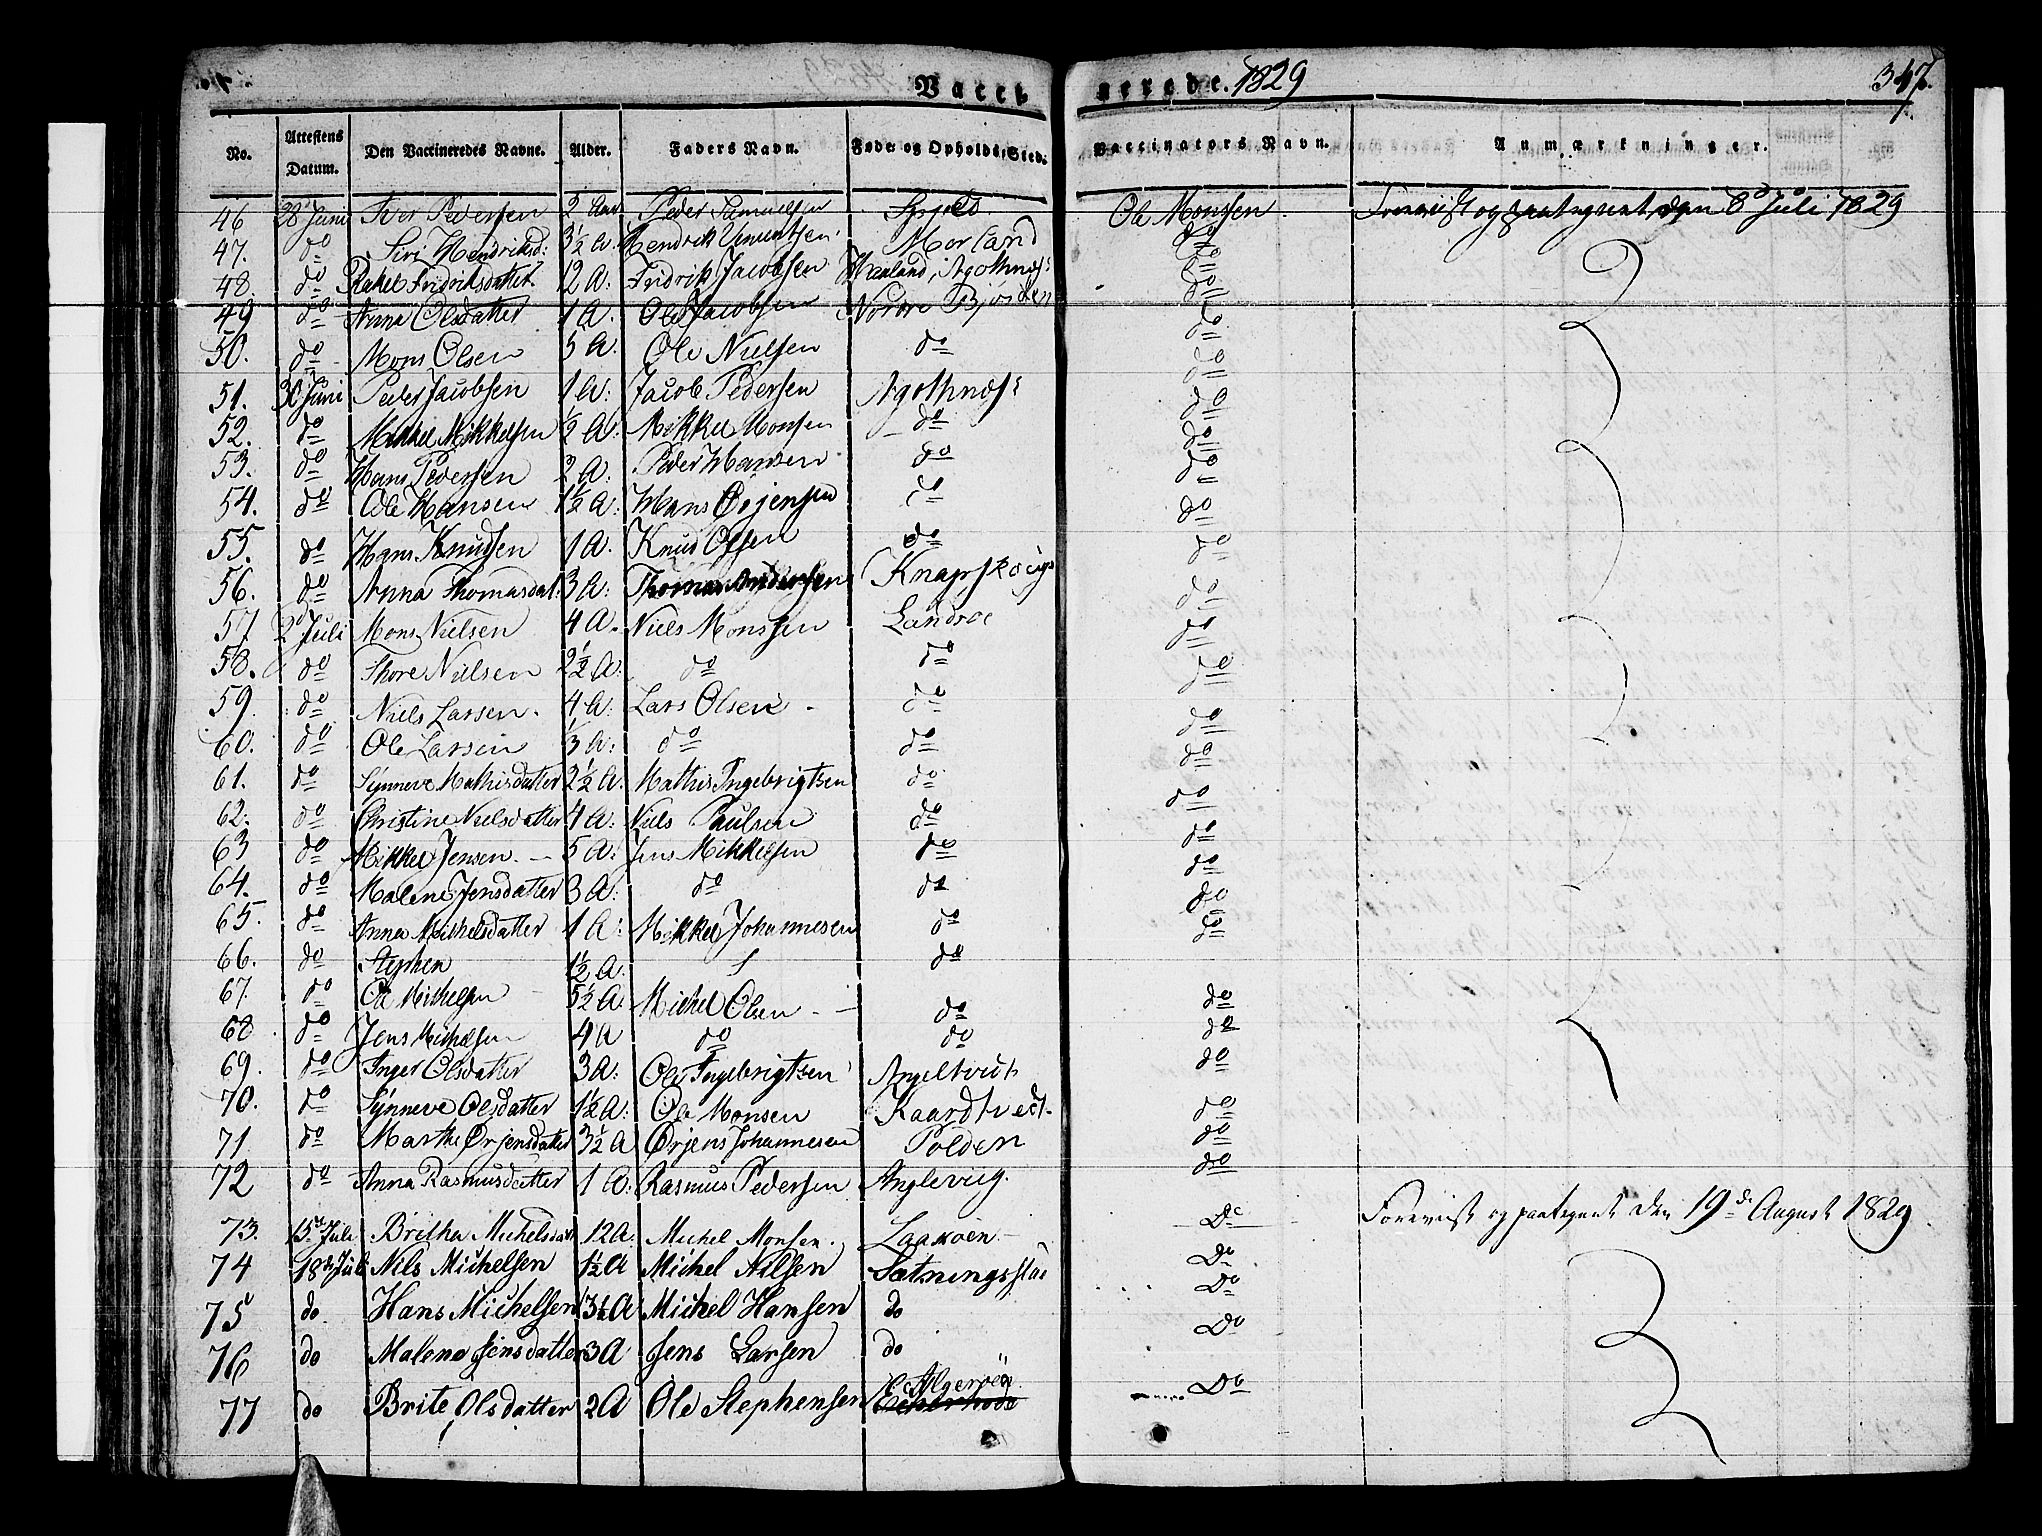 Vacci nerede. 1829 347.
No. Attestens Datum. Den Vaccineredes Navne. Alder. Faders Navn. Føde og Opholds Sted. Vaccinators Navn. Anmærkninger.
46 28 Juni Iver Pedersen 2 Aar Peder Samuelsen Spjeld Ole Monsen Foreviist og paategnet den 8d Juli 1829
47. do Siri Hendriksd: 3½ A Hendrik Vincentsen Morland do
48. do Rakel Fridriksdatter 12 A: Fridrik Jacobsen Agothnæs do
49 do Anna Olsdatter 1 A. Ole Jacobsen Nordre Bjorøen do
50. do Mons Olsen 5 A. Ole Nielsen do do
51. 30 Juni Peder Jacobsen 1 A: Jacob Pedersen Agothnæs do
52. do Mikkel Mikkelsen ½ A: Mikkel Monsen do do
53. do Hans Pedersen 2 A: Peder Hansen do do
54. do Ole Hansen 1½ A: Hans Ørjensen do do
55. do Hans Knudsen 1 A. Knud Olsen do do
56. do Anna Thomasdat. 3 A: Thomas Andersen Knapskoug do
57 2d Juli Mons Nielsen 4 A. Niels Monssen Landroe do
58. do Thore Nielsen 2½ A: do do do
59. do Niels Larsen. 4 A: Lars Olsen do do
60. do Ole Larsen ⅓ A: do do do
61. do Synneve Mathisdatter 2½ A. Mathis Ingebrigtsen do do
62. do Christine Nielsdatter 4 A: Niels Paulsen do do
63 do Mikkel Jensen. 5 A: Jens Mikkelsen do do
64. do Malene Jensdatter 3 A: do do do
65. do Anna Michelsdatter 1 A: Mikkel Johannesen do do
66. do Stephen 1½ A. do
67. do Ole Michelsen 5½ A. Michel Olsen do do
68 do Jens Michelsen 4 A do do do
69. do Inger Olsdatter 3 A: Ole Ingebrigtsen Angeltveit do
70. do Synneve Olsdatter 1½ A: Ole Monsen Kaardtvedt do
71 do Marthe Ørjensdatter 3½ A Ørjens Johannesen Polden do
72 do Anna Rasmusdatter 1 A: Rasmus Pedersen Anglevig. do
73. 15de Juli Britha Michelsdatt 12 A: Michel Monsen. Laakøen Do Foreviist og paategnet den 19de August 1829
74 18de Juli Nils Michelsen 1½ A Michel Nilsen Sætningsstøe Do
75 do Hans Michelsen 3½ A Michel Hansen do Do
76 do Malene Jensdatter 3 A Jens Larsen do Do
77 do Brite Olsdatter 2 A Ole Stephensen Algerøen Do